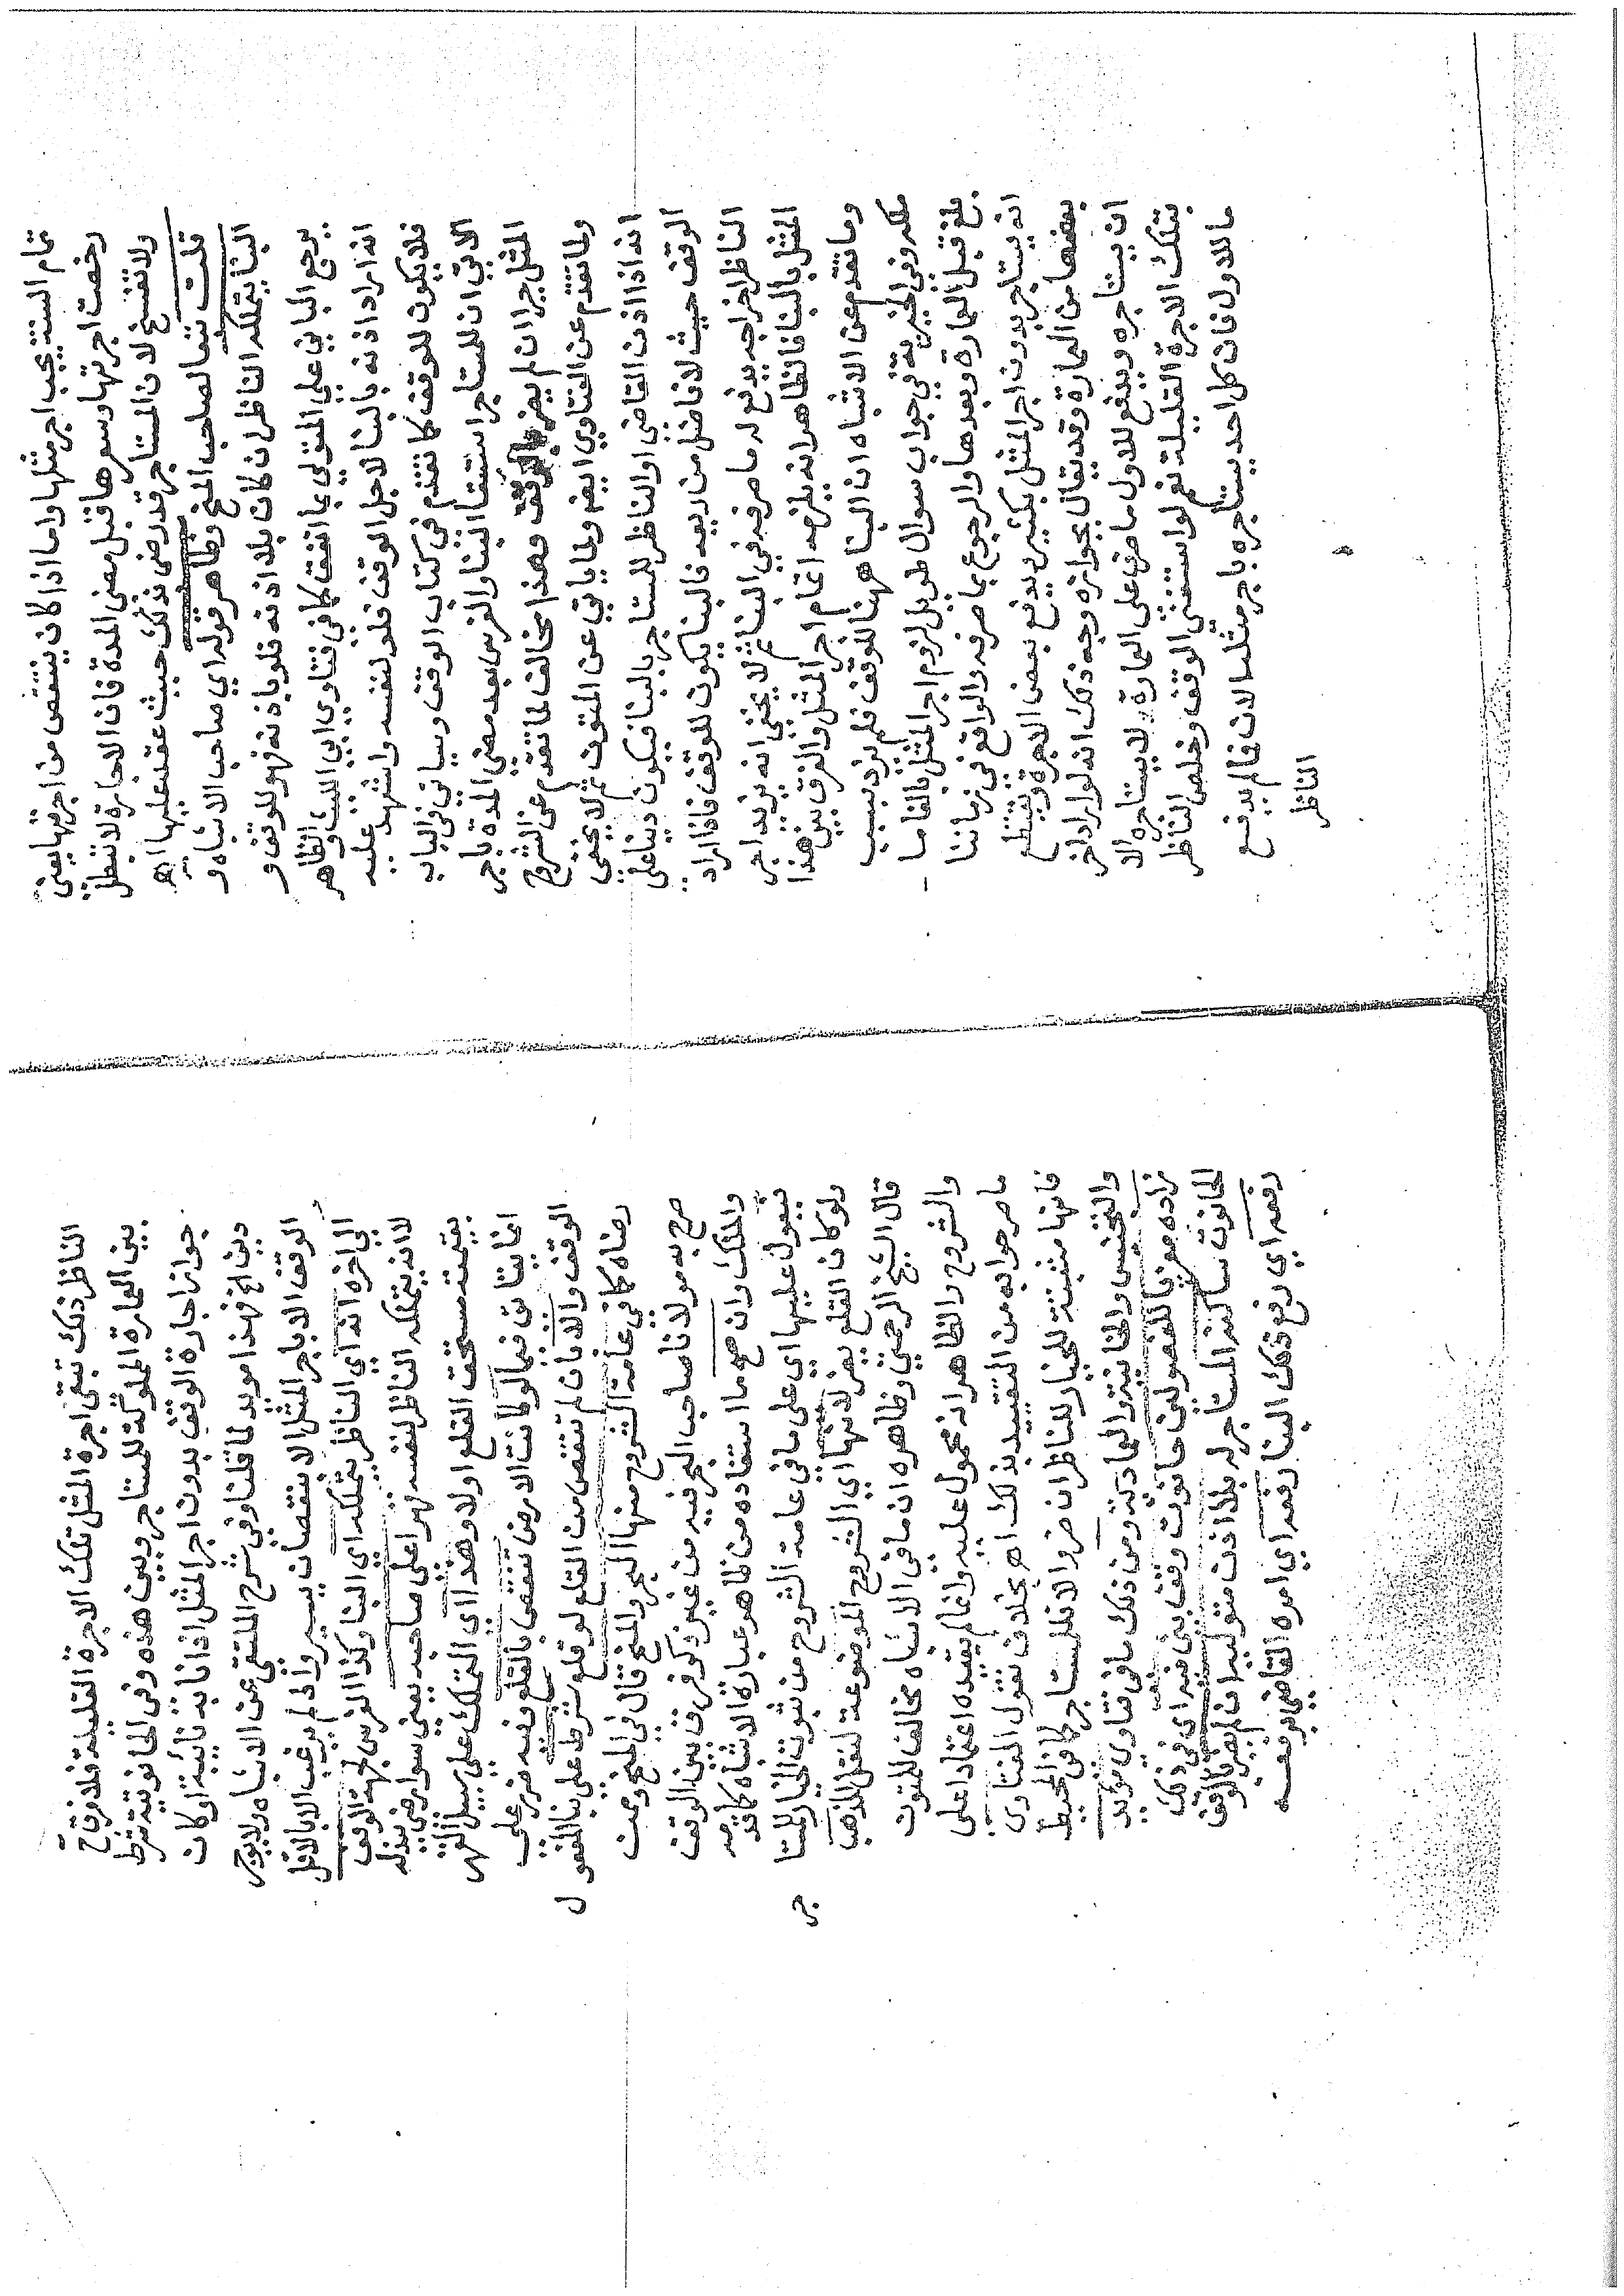 تمام السنة يجب اجر مثلها واما اذا كان ينتقص من اجرتها يعني
رخصت اجرتها وسعرها قبل مضي المدة فان الاجارة لا تبطل
ولا تفسخ لان المستاجر قد رضي بذلك حيث عقد عليها اهـ
قلت تبعا لصاحب المنح وظاهر قوله اي صاحب الاشباه و
البنا يتملكه الناظر ان كان بلا اذنه فلو باذنه فهو للوقف و
يرجع الباني على المتولي بما انفق كما في فتاوي ابي الليث والظاهر
انه اراد اذنه بالبنا لاجل الوقف فلو لنفسه واشهد عليه
فلا يكون للوقف كما تقدم في كتاب الوقف وسياتي في الباب
الاتي ان للمستاجر استبقا البنا والغرس بعد مضي المدة باجر
المثل جبرا ان لم يضر بالوقف وهذا مخالف لما تقدم عن الشرح
ولما تقدم عن الفتاوي ايضا ولما ياتي عن المتون ثم لا يخفى
انه اذا اذن القاضي او الناظر للمستاجر بالبنا فيكون دينا على
الوقف حيث لا فاضل من ريعه فالبنا يكون للوقف فاذا اراد
الناظر اخراجه يدفع له ما صرفه في البنا ثم لا يخفى انه يزيد اجر
المثل بالبنا فالظاهر انه يلزمه اتمام اجر المثل والفرق بين هذا
وما تقدم عن الاشباه ان البنا ههنا للوقف فلم يزد بسبب
ملكه وفي الخيرية في جواب سوال طويل لزوم اجر المثل بالغا ما
بلغ قبل العمارة وبعدها والرجوع بما صرفه والواقع في زماننا
انه يستاجر بدون اجر المثل بكثير ويدفع بعض الاجرة ويقتطع
بعضها من العمارة وقد يقال بجوازه وجه ذلك انه لو اراد اخر
ان يستاجره ويدفع للاول ما صرفه على العمارة لا يستاجره الا
بتلك الاجرة القليلة نعم لو استغنى الوقف وخلص الناظر
ما للاول فان كل احد يستاجره باجر مثله الان فما لم يدفع
الناظر
الناظر ذلك تبقى اجرة المثل تلك الاجرة القليلة فلا فرق ح
بين العمارة المملوكة للمستاجر وبين هذه وفي الحانوتية شرط
جواز اجارة الوقف بدون اجر المثل اذا نابته نائبة او كان
دين الخ فهذا مويد لما قلنا وفي شرح الملتقى عن الاشباه ولا يوجر
الوقف الا باجر المثل الا بنقصان يسير واذا لم يرغب الا بالاقل
الى اخره انه اي الناظر يتملكه اي البنا وكذا الغرس لجهة الوقف
لا انه يتملكه الناظر لنفسه قهرا على صاحبه يعني سوا رضي بذلك
بقيمته مستحق القلع او لا وهذا اي التملك على سبيل القهر
انما يتاتى فيما لو كانت الارض تنقص بالقلع وفيه ضرر على
الوقف والا بان لم تنقص من القلع لو قلع شرط على بنا المفعول
رضاه كما في عامة الشروح منها البحر والمنح قال في المنح وممن
صرح به مولانا صاحب البحر فيه من غير ذكر فرق بين الوقف
والملك وان صح ما استفاده من ظاهر عبارة الاشباه كما قدمه
فيعول عليها اي على ما في عامة الشروح من ثبوت الخيار للمستاجر
ولو كان القلع يضر لانها اي الشروح الموضوعة لنقل المذهب
قال الشيخ الرحمتي وظاهره ان ما في الاشباه مخالف للمتون
والشروح والظاهر انه محمول عليه وانما لم يقيده اعتمادا على
ما صرحوا به من التقييد بذلك اهـ بخلاف نقول الفتاوى
فانها مثبتة للخيار للناظر ان ضر والا فللمستاجر كما في المحيط
والتجنيس والخانية والعمادية ومن ذلك ما في فتاوى مؤيد
زاده معزيا للفصولين حانوت وقف بنى فيه اي في ذلك
الحانوت ساكنه المستاجر له بلا اذن متوليه ان لم يضر بالوقف
رفعه اي رفع ذلك البنا رفعه اي امره القاضي برفعه